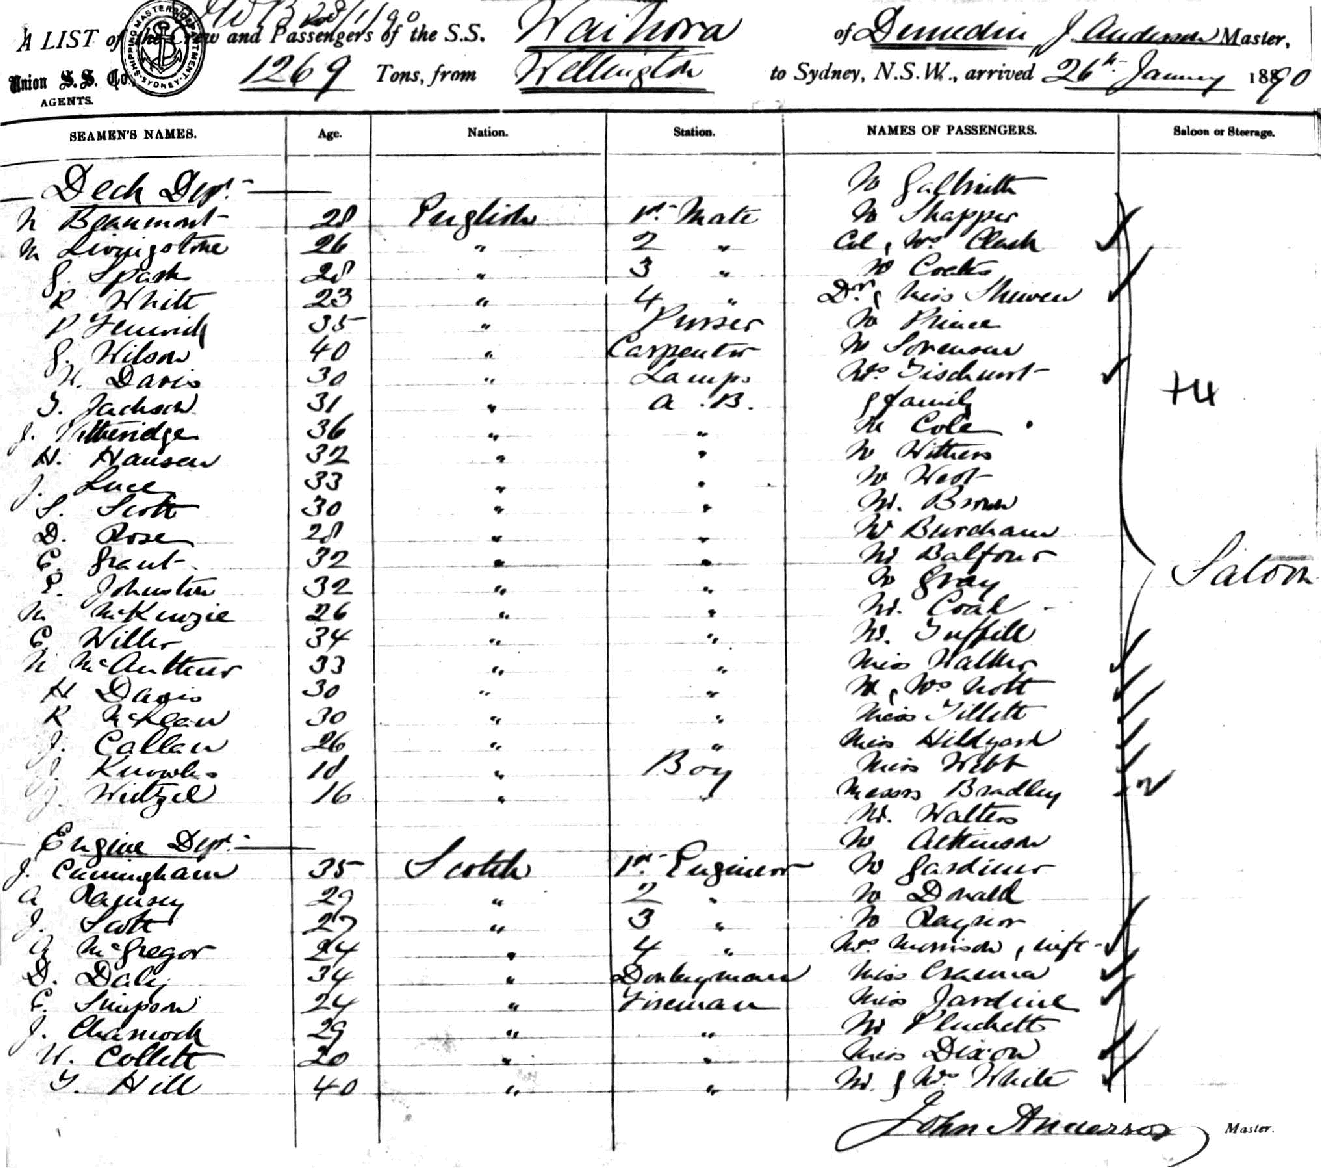 A LIST of the Crew and Passengers of the S.S. Waihora of Dunedin J. Anderson Master,
Union S.S. Co. AGENTS. 1269 Tons, from Wellington to Sydney, N.S.W., arrived 26th January 1890
SEAMEN'S NAMES. Age. Nation. Station. NAMES OF PASSENGERS. Saloon or Steerage.
Deck Dept. Mr Galbraith
N Beaumont 28 English 1st Mate Mr Shapper
M Livingstone 26 " 2 " Col & Mrs Clark
G. Spash 28 " 3 " Mr Cocks
R White 23 " 4 " Dr & Miss
35 " Purser Mr Prince
G. Wilson 40 " Carpenter Mr Sorensen
H. Davis 30 " Lamps Mrs Ticehurst
T. Jackson 31 " A.B. & family +4
J. Petheridge 36 " " Mr Cole
H. Hansen 32 " " Mr Withers
J. Luce 33 " " Mr West
S. Scott 30 " " Mr. Brown
D. Rose 28 " " Mr Burcham
C. Grant 32 " " Mr Balfour Saloon
P. Johnston 32 " " Mr Gray
M. McKenzie 26 " " Mr. Coak
C Willer 34 " " Mr. Tuffill
N McArthur 33 " " Miss Walker
H Davis 30 " " Mr & Mrs Nott
R McLean 30 " " Miss Tillett
J. Callan 26 " " Miss Hildyard
J. Knowles 18 " Boy Miss Webb
J. Wetzel 16 " " Messrs Bradley 2
Mr. Walters
Engine Dept. Mr Atkinson
J. Cunningham 35 Scotch 1st Engineer Mr Gardiner
A Ramsey 29 " 2 " Mr Donald
J. Scott 27 " 3 " Mr Raynor
A McGregor 24 " 4 " Mr Morrison & wife
D. Daly 34 " Donkeyman Miss
C. Simpson 24 " Fireman Miss Jardine
J. Charnock 29 " " Mr Pluckett
W. Collett 20 " " Miss Dixon
T. Hill 40 " " Mr. & Mrs White
John Anderson Master.